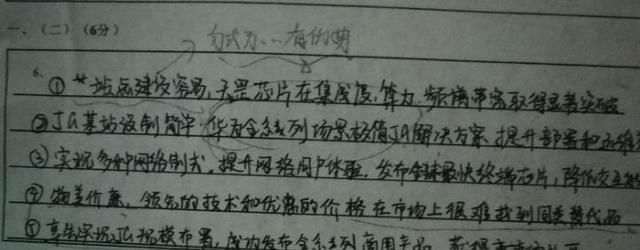 一、（二）（6分）
方式方…有优势
6.
①站点建设容易，天罡芯片在集成度，算力，频谱带宽取得显著突破
②5G基站设制简单，华为全系列场景极值5G解决方案 提升部署和运维
③实现多种网络制式，提升网络用户体验，发布全球最快终端芯片，降低交互时
④物美价廉，领先的技术和优惠的价格在市场上很难找到同类替代品
⑤率先实现5G规模布署，成功发布全系列商用产品